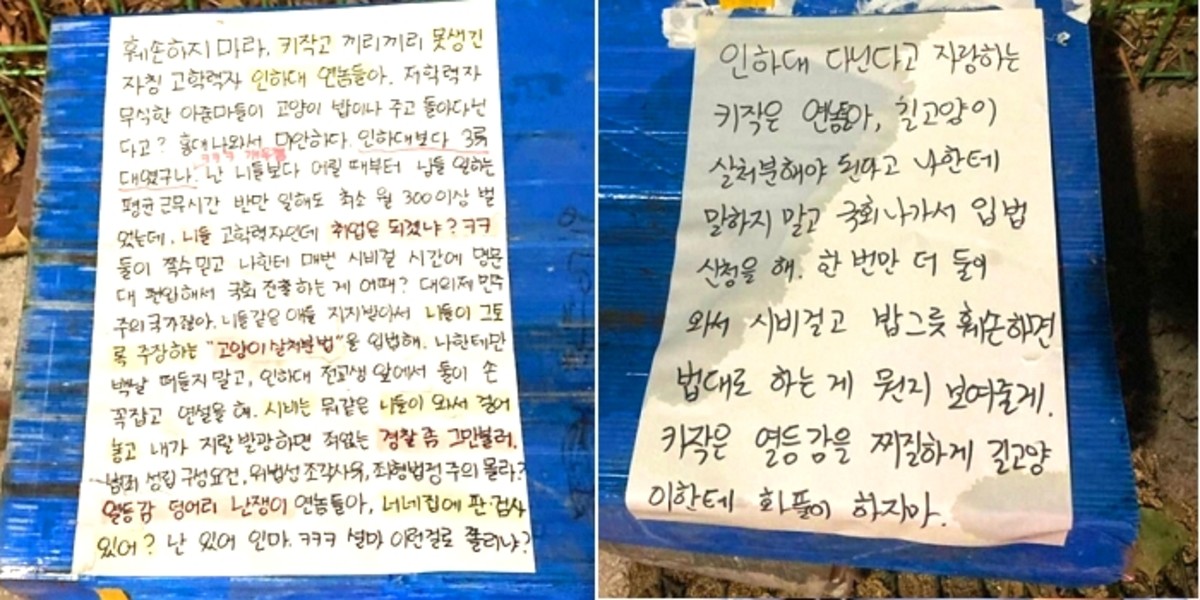 훼손하지 마라, 키작고 끼리끼리 못생긴
자칭 고학력자 인하대 연놈들아. 저학력자
무식한 아줌마들이 고양이 밥이나 주고 돌아다닌
다고? 홍대나와서 미안하다. 인하대보다 3류
ㅋㅋㅋ
대였구나. 난 니들보다 어릴 때부터 남들 일하는
평균 근무시간 반만 일해도 최소 월 300 이상 벌
었는데. 니들 고학력자인데 취업은 되겠냐? ㅋㅋ
둘이 쪽수 믿고 나한테 매번 시비걸 시간에 명문
대 편입해서 국회 진출 하는 게 어때? 대의제 민주
주의 국가잖아. 니들같은 애들 지지받아서 니들이 그토
록 주장하는 "고양이 살처분법"을 입법해. 나한테만
백날 떠들지 말고, 인하대 전교생 앞에서 둘이 손
꼭잡고 연설을 해. 시비는 뭐같은 니들이 와서 걸어
놓고 내가 지랄발광하면 죄없는 경찰 좀 그만불러.
범죄 성립 구성요건, 위법성 조각사유, 죄형법정주의 몰라?
열등감 덩어리 난쟁이 연놈들아, 너네집에 판·검사
있어? 난 있어 인마. ㅋㅋㅋ 설마 이런걸로 쫄리냐?
인하대 다닌다고 자랑하는
키작은 연놈들아, 길고양이
살처분해야 된다고 나한테
말하지 말고 국회 나가서 입법
신청을 해. 한 번만 더 둘이
와서 시비걸고 밥그릇 훼손하면
법대로 하는 게 뭔지 보여줄게.
키작은 열등감을 찌질하게 길고양
이한테 화풀이 하지마.